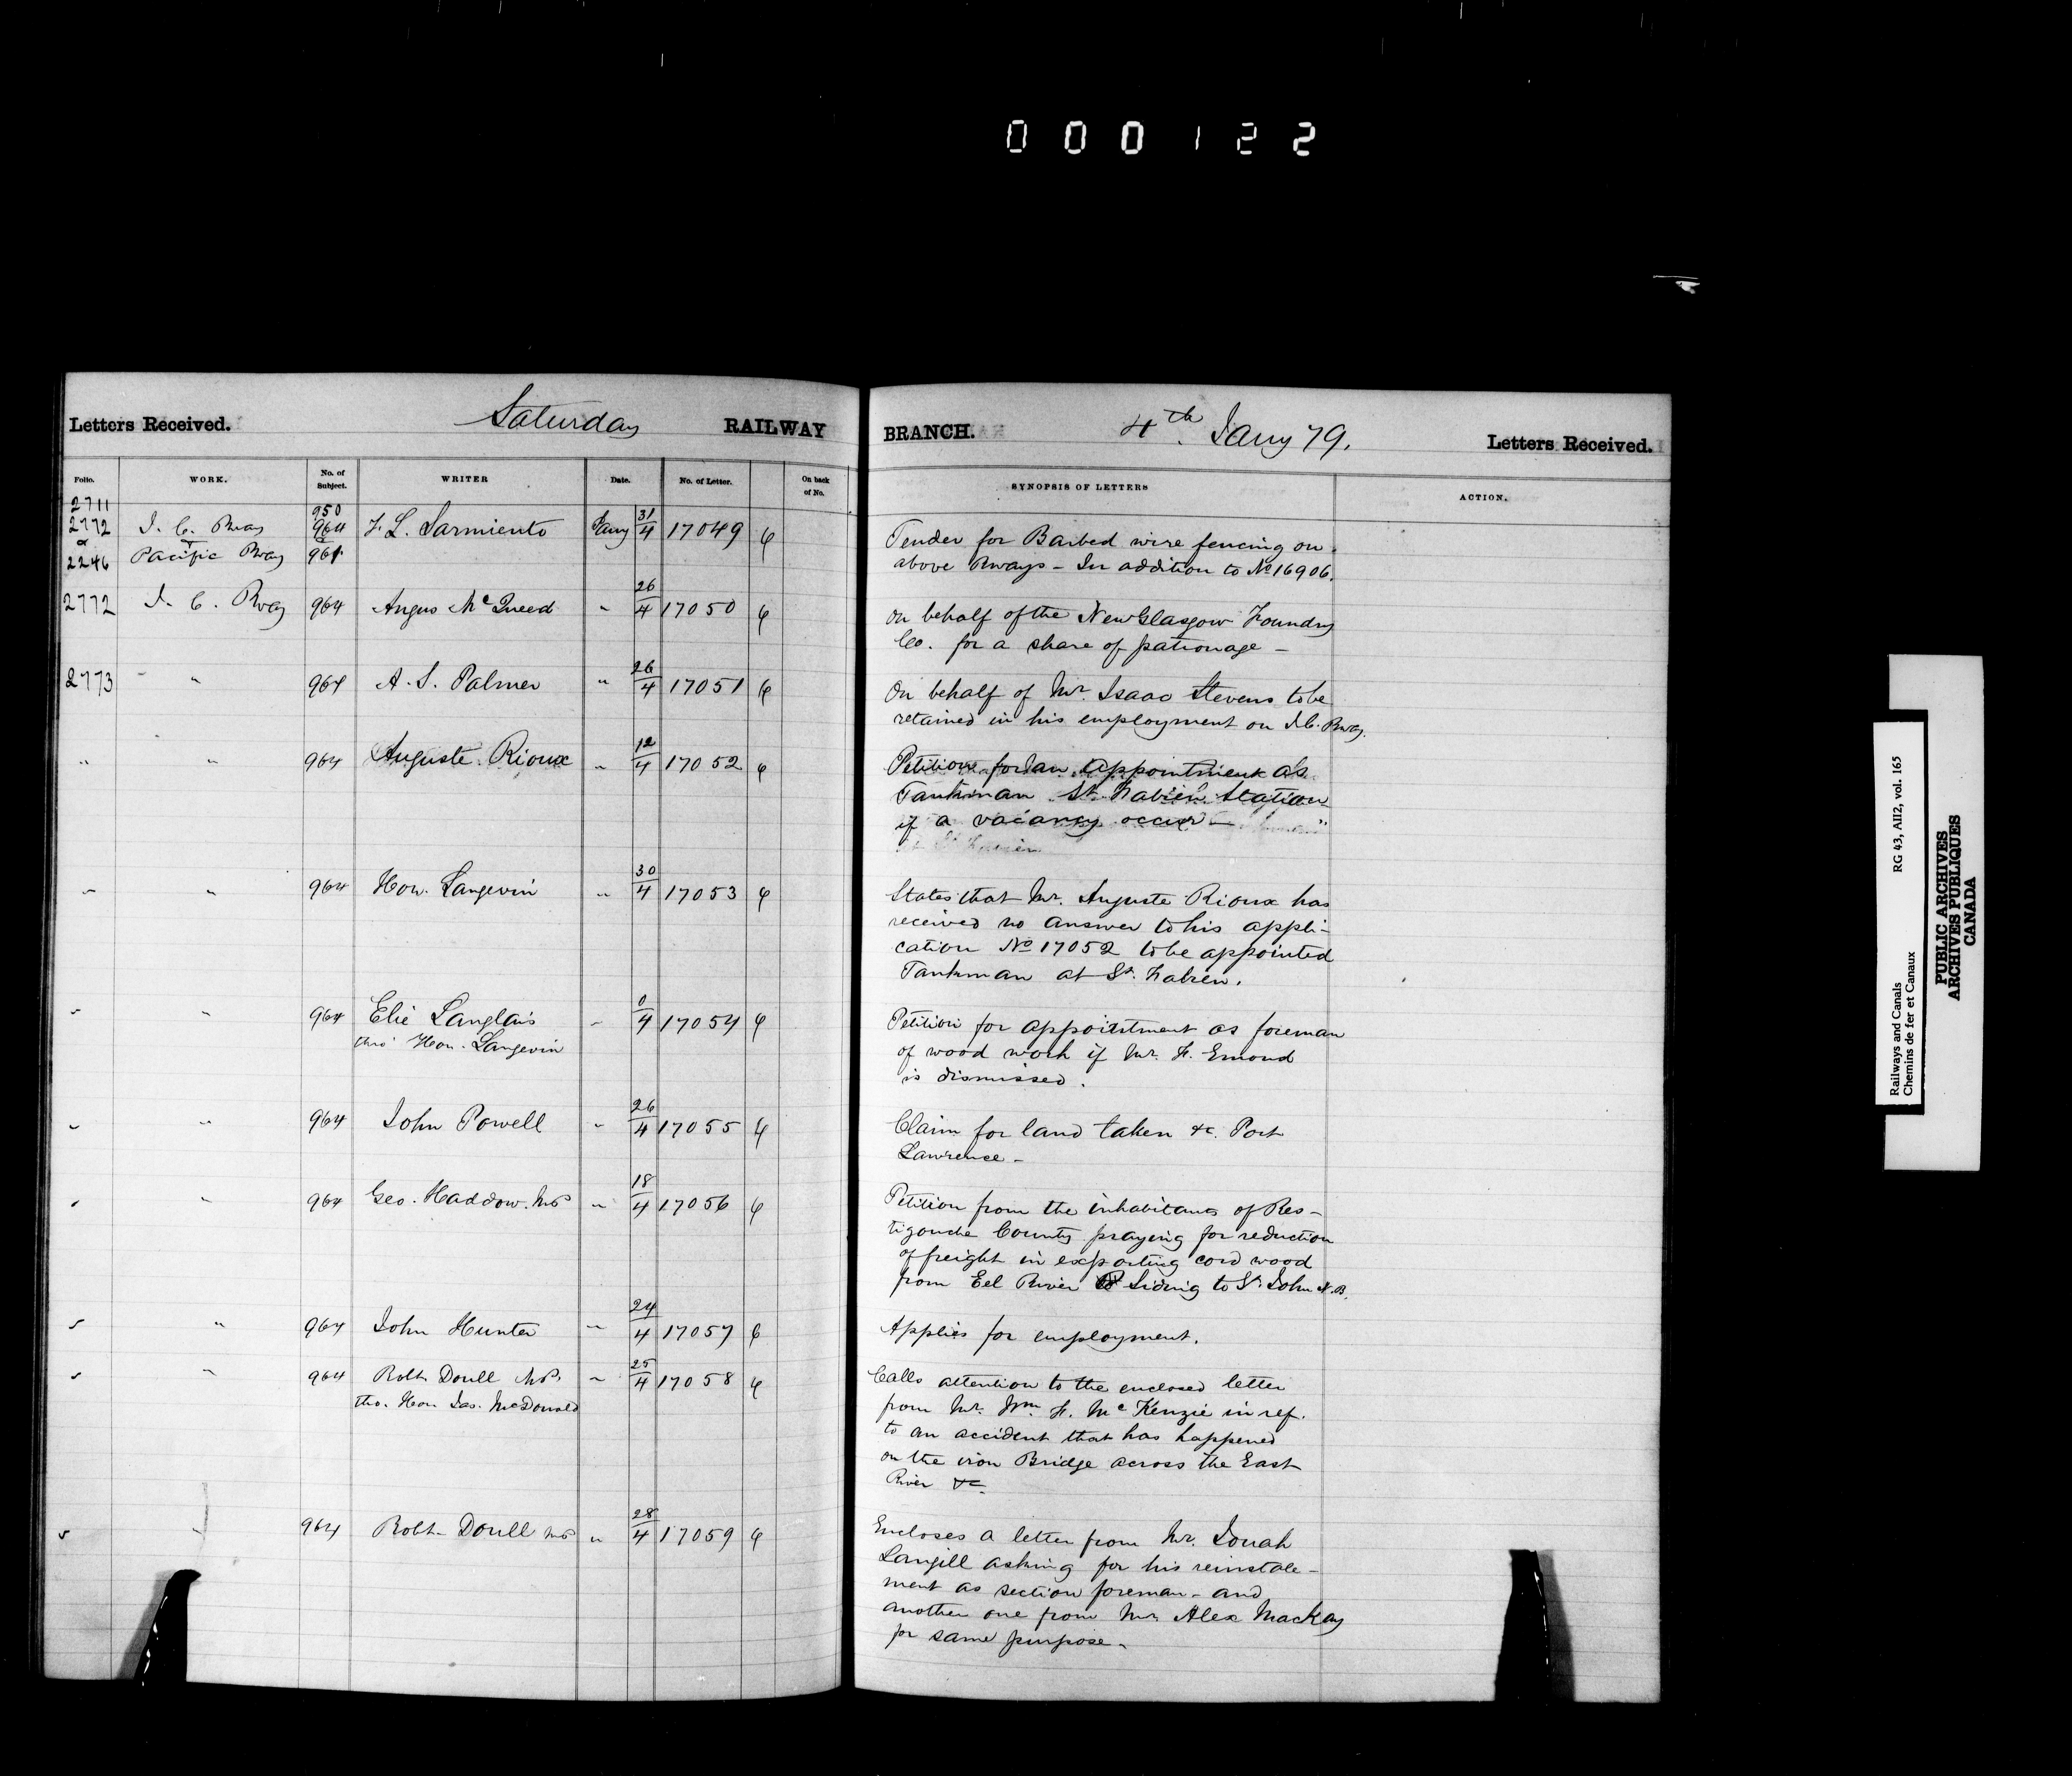 000122
Letters Received. Saturday RAILWAY
BRANCH. 4th Jany 79. Letters Received.
Folio. WORK. No. of Subject. WRITER Date. No. of Letter. On back of No.
SYNOPSIS OF LETTERS ACTION.
2711 950
2772 I. C. Rway 964 F. L. Sarmiento Jany 31/4 17049 6
& & &
2246 Pacific Rway 961
Tender for Barbed wire fencing on
above Rways - In addition to No 16906.
2772 I. C. Rway 964 Angus McQueed " 26/4 17050 6
On behalf of the New Glasgow Foundry
Co. for a share of patronage -
2773 " 964 A. S. Palmer " 26/4 17051 6
On behalf of Mr. Isaac Stevens to be
retained in his employment on I.C. Rway.
" " 964 Auguste Rioux " 12/4 17052 6
Petition for an appointment as
Tankman St. Fabien Station
if a vacancy occur -
" " 964 Hon. Langevin " 30/4 17053 6
States that Mr. Auguste Rioux has
received no answer to his appli-
cation No 17052 to be appointed
Tankman at St. Fabien.
" " 964 Elie Langlais " 0/4 17054 6
thro' Hon. Langevin
Petition for appointment as foreman
of wood work if Mr. F. Emond
is dismissed.
" " 964 John Powell " 26/4 17055 6
Claim for land taken &c. Port
Lawrence -
" " 964 Geo. Haddow. MP " 18/4 17056 6
Petition from the inhabitants of Res-
tigouche County praying for reduction
of freight in exporting cord wood
from Eel River Siding to St John N.B.
" " 964 John Hunter " 24/4 17057 6
Applies for employment.
" " 964 Robt Doull MP. " 25/4 17058 6
thro. Hon Jas. McDonald
Calls attention to the enclosed letter
from Mr. Wm. F. McKenzie in ref.
to an accident that has happened
on the iron Bridge across the East
River &c.
" " 964 Robt Doull MP " 28/4 17059 6
Encloses a letter from Mr. Jonah
Langill asking for his reinstate-
ment as section foreman - and
another one from Mr. Alex MacKay
for same purpose -
Railways and Canals RG 43, AII2, vol. 165
Chemins de fer et Canaux
PUBLIC ARCHIVES
ARCHIVES PUBLIQUES
CANADA